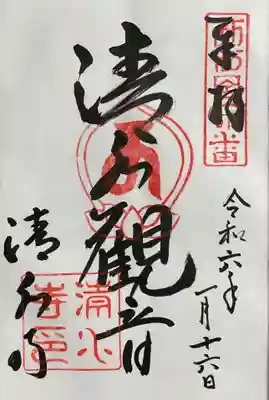 奉拝
清水觀音
令和六年
一月十六日
清水寺
清水
寺印